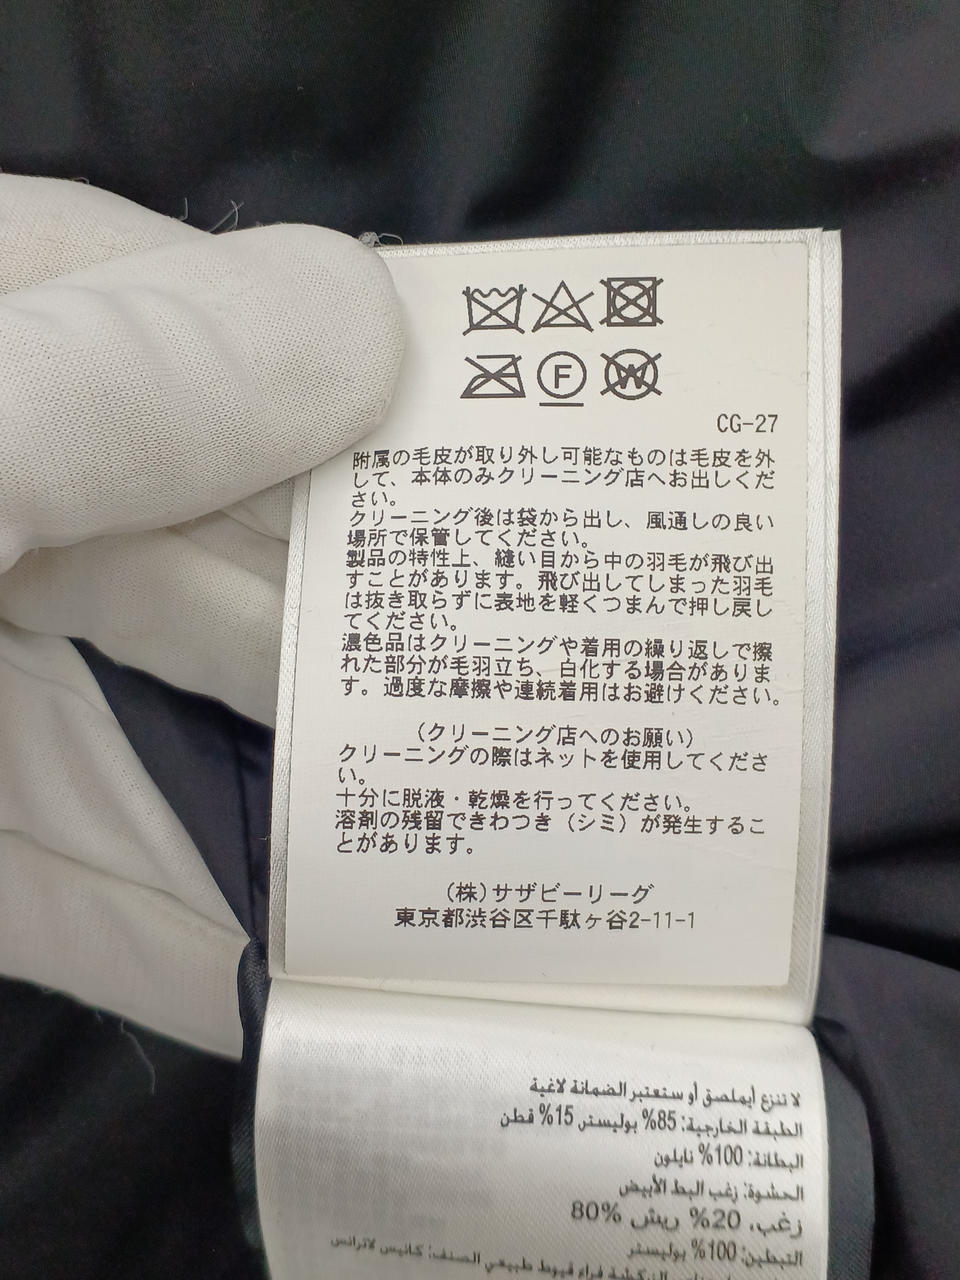 F
W
CG-27
附属の毛皮が取り外し可能なものは毛皮を外
して、本体のみクリーニング店へお出しくだ
さい。
クリーニング後は袋から出し、風通しの良い
場所で保管してください。
製品の特性上、縫い目から中の羽毛が飛び出
すことがあります。飛び出してしまった羽毛
は抜き取らずに表地を軽くつまんで押し戻し
てください。
濃色品はクリーニングや着用の繰り返しで擦
れた部分が毛羽立ち、白化する場合がありま
す。過度な摩擦や連続着用はお避けください。
(クリーニング店へのお願い)
クリーニングの際はネットを使用してくださ
い。
十分に脱液・乾燥を行ってください。
溶剤の残留できわつき（シミ）が発生するこ
とがあります。
(株)サザビーリーグ
東京都渋谷区千駄ヶ谷2-11-1
لا تنزع أيملصق أو ستعتبر الضمانة لاغية
الطبقة الخارجية: 85% بوليستر 15% قطن
البطانة: 100% نايلون
الحشوة: زغب البط الأبيض
80% زغب، 20% ريش
التبطين: 100% بوليستر
فراء قيوط طبيعي الصنف: كانيس لاترانس